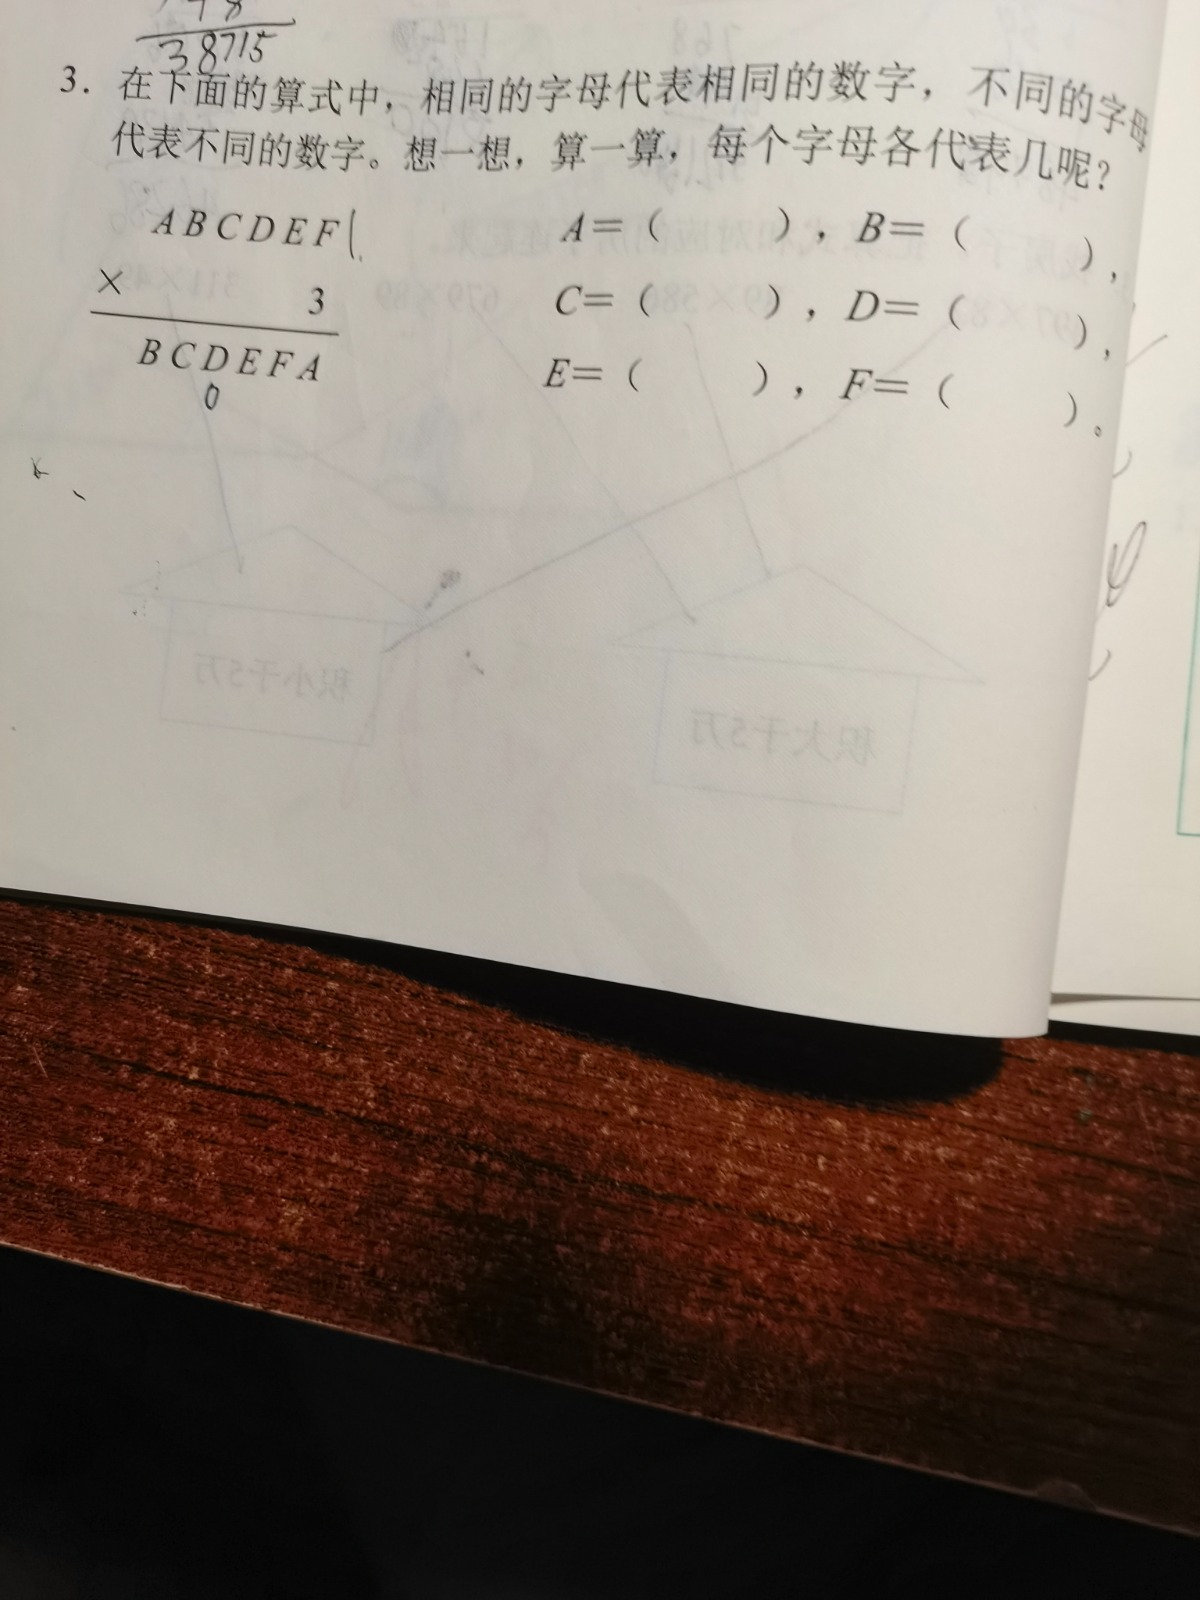 38715
3. 在下面的算式中，相同的字母代表相同的数字，不同的字母
代表不同的数字。想一想，算一算，每个字母各代表几呢？
ABCDEF
× 3
BCDEFA
0
A=（ ），B=（ ），
C=（ ），D=（ ），
E=（ ），F=（ ）。
积小于5万
积大于5万